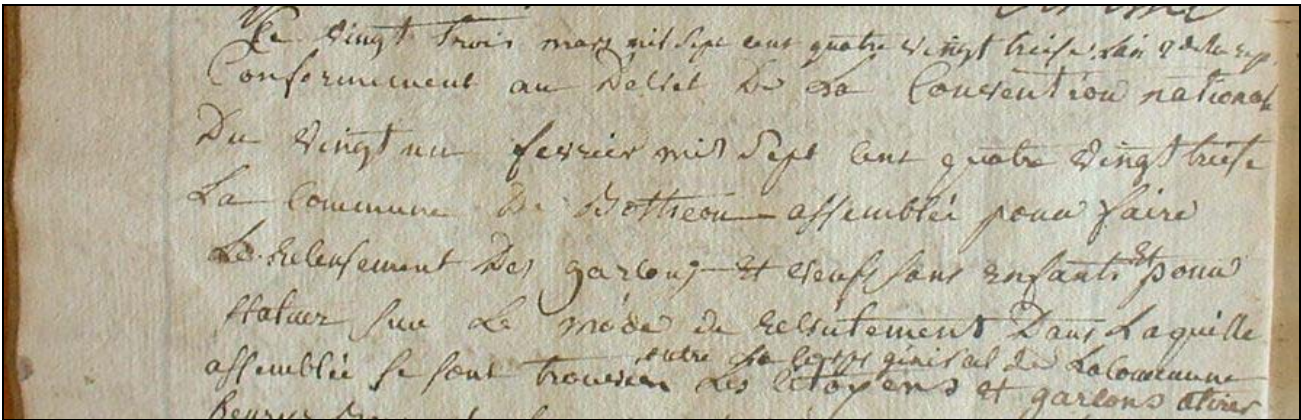 Le vingt trois mars mil sept cent quatre vingt treise L'an 2 de la rep.
Conformement au Decret De La Convention nationale
Du vingt un fevrier mil Sept Cent quatre vingt treise
La Commune De Botheon assemblée pour faire
Le Relensement Des garlons Et veufs sans enfants Et pour
statuer sur Le mode de Recrutement Dans Laquelle
outre Le Corps general de La commune
assemblée se sont trouvés Les Citoyens et garlons